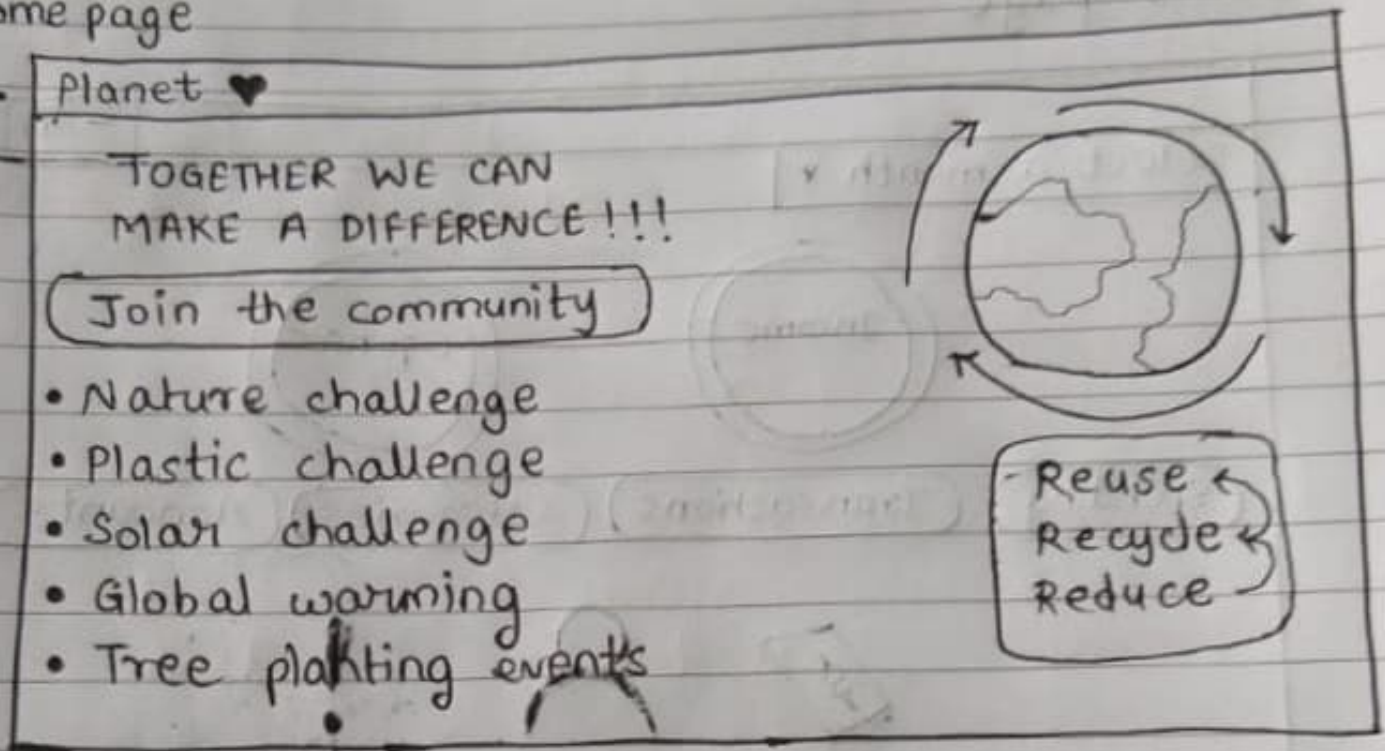 ome page
Planet ♥
TOGETHER WE CAN
MAKE A DIFFERENCE!!!
Join the community
• Nature challenge
• Plastic challenge
• Solar challenge
• Global warming
• Tree planting events
Reuse
Recycle
Reduce